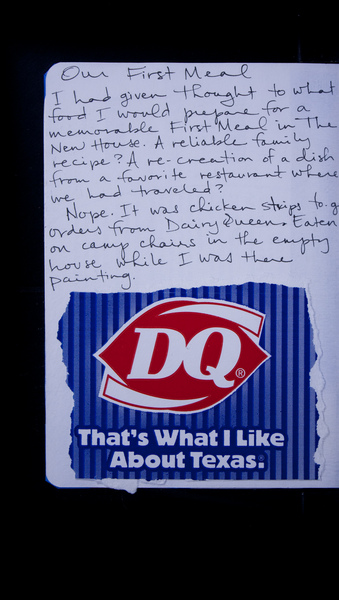 Our First Meal
I had given thought to what
food I would prepare for a
memorable First Meal in The
New House. A reliable family
recipe? A re-creation of a dish
from a favorite restaurant where
we had traveled?
Nope. It was chicken strips to-g
orders from Dairy Queen. Eaten
on camp chairs in the empty
house while I was there
painting.
DQ®
That's What I Like
About Texas.